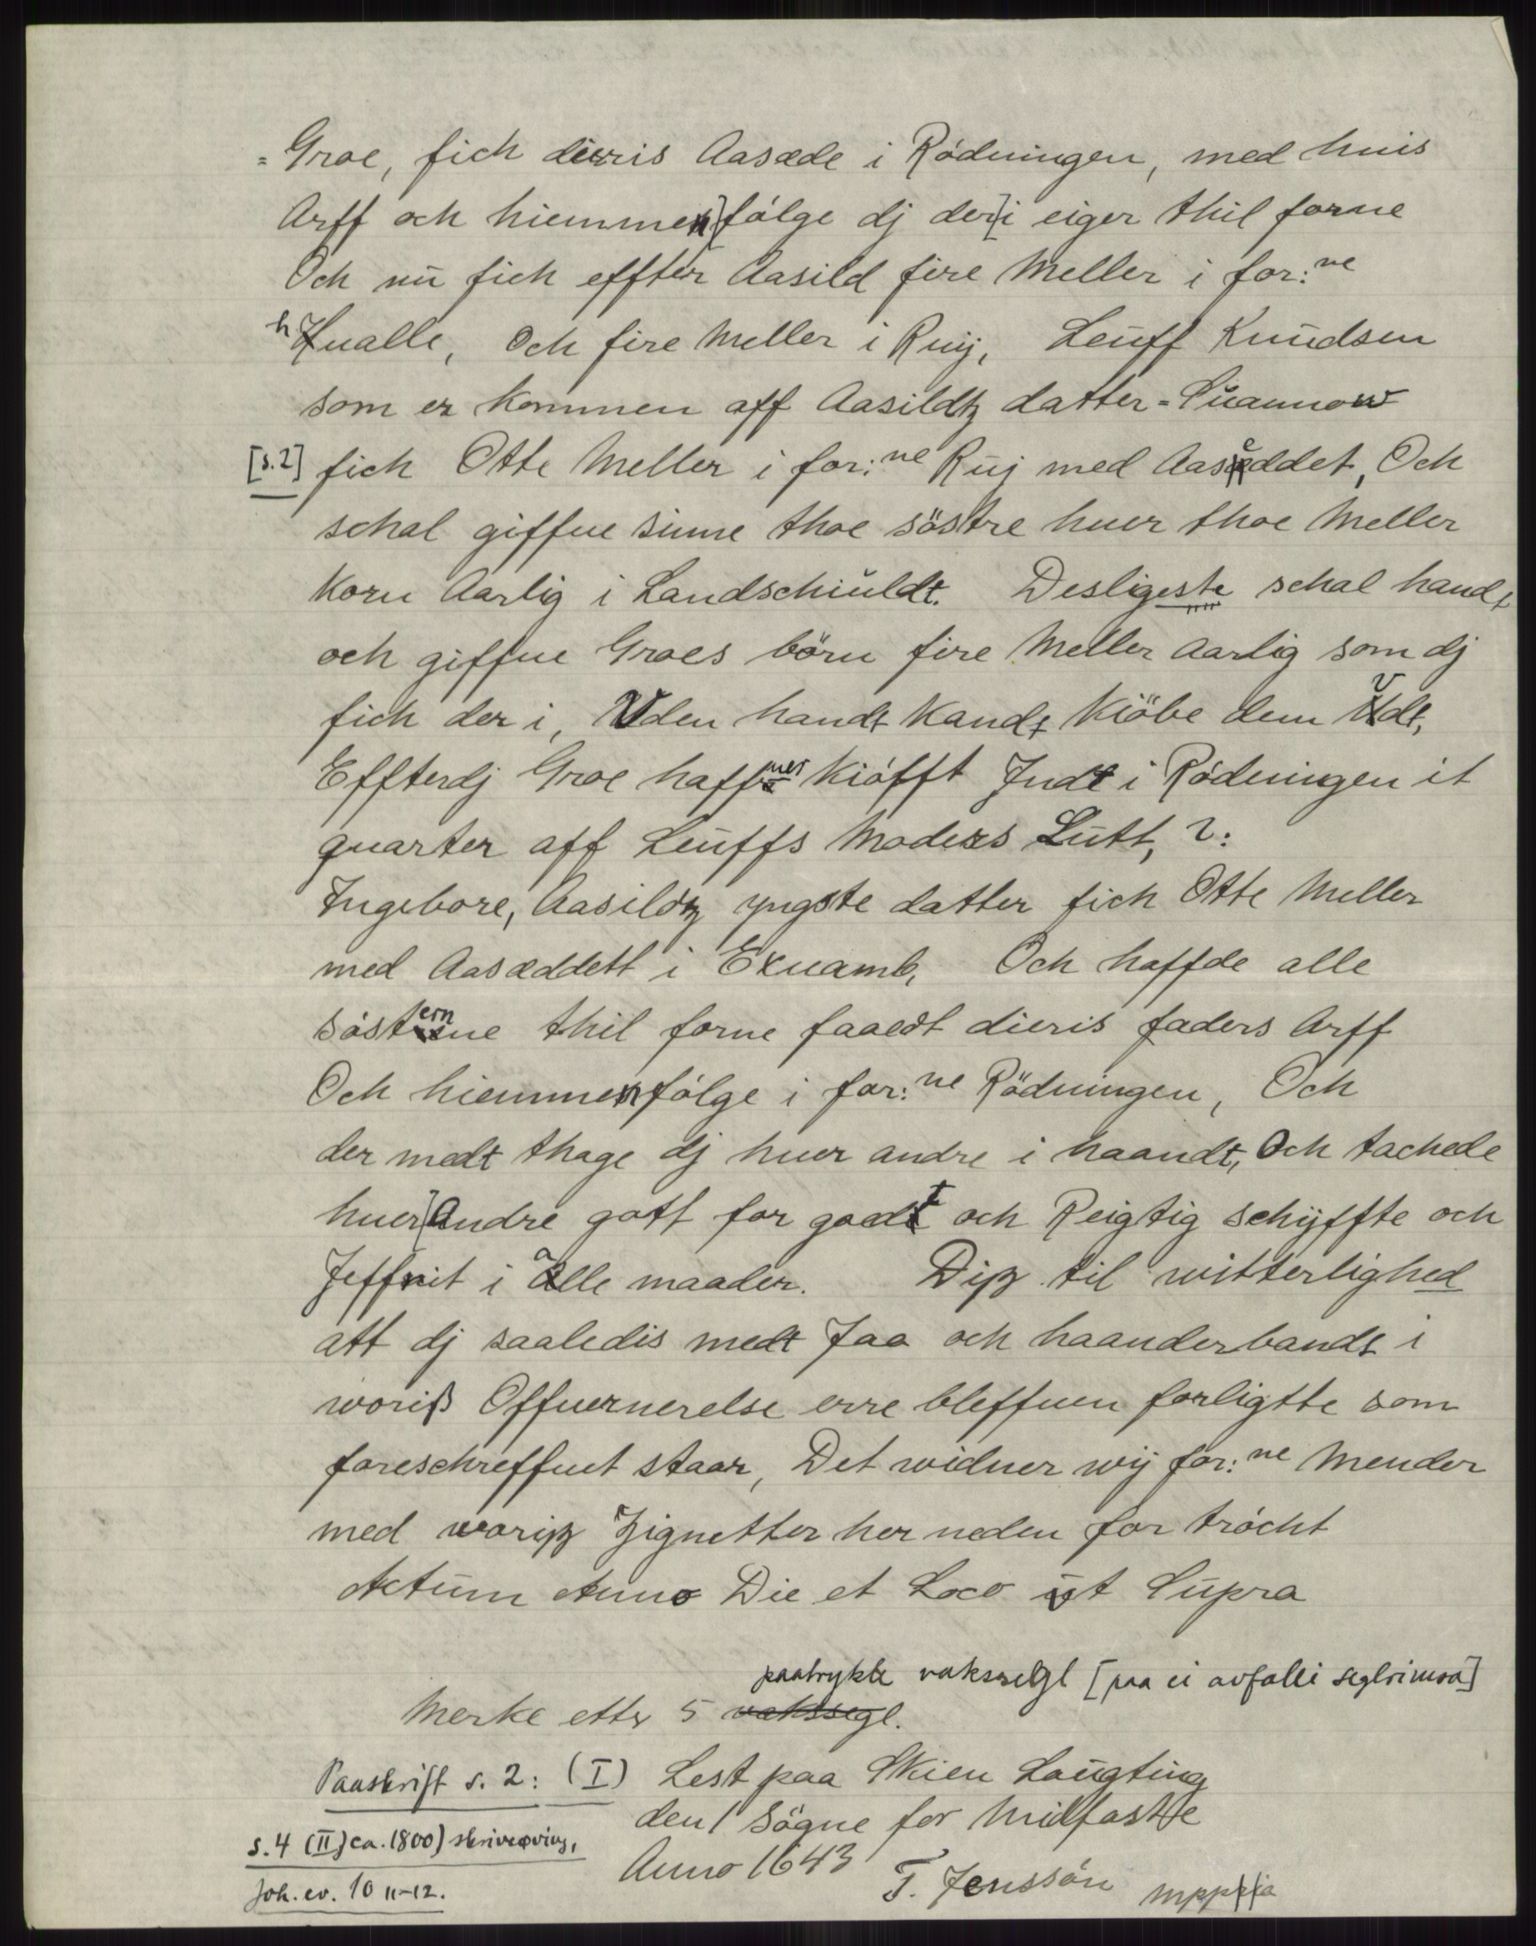 = Groe, fich dieris Aasæde i Rödningen, med huis
Arff och hiemmen]fölge dj der[i eiger thil forne
Och nu fich effter Aasild fire Meller i for:ne
hualle, Och fire Meller i Ruij, Leuff Knudsen
som er kommen aff Aasildtz datter = Suannow
[s.2] fich Otte Meller i for:ne Ruj med Aaseddet, Och
schal giffue sinne thoe söstre huer thoe Meller
Korn Aarlig i Landschiuldt. Desligeste schal handt
och giffue Groes börn fire Meller Aarlig som dj
fich der i, Vden handt Kandt kiöbe dem Vdt,
Effterdj Groe haffuer kiöfft Jndt i Rödningen it
quarter aff Leuffs Moders Lutt, 2:
Ingebore, Aasildtz yngste datter fich Otte Meller
med Aasæddett i Exuamb, Och haffde alle
sösterne thil forne faaedt dieris faders Arff
Och hiemmenfölge i for:ne Rödningen, Och
der medt thage dj huer andre i haandt, Och tachede
huer]andre gott for godt och Reigtig schijffte och
Jeffnit i alle maader. Disz til witterlighed
att dj saaledis medt Jaa och haanderbandt i
woriß Offuernerelse erre bleffuen forligtte som
foreschreffuet staar, Det widner wij for:ne Mender
med worisz Zignetter her neden for tröcht
Actum Anno Die et Loco ut Supra
paatrykte vakssegl [paa ei avfalli seglrimsa]
Merke etter 5 vakssegl.
Paaskrift s. 2: (I) Lest paa Skien Laugting
den 1 Sögne for Midfaste
s.4 (II) ca. 1800) skriveøving,
Anno 1643
Joh. ev. 10 11-12.
T. Jenssön mppria